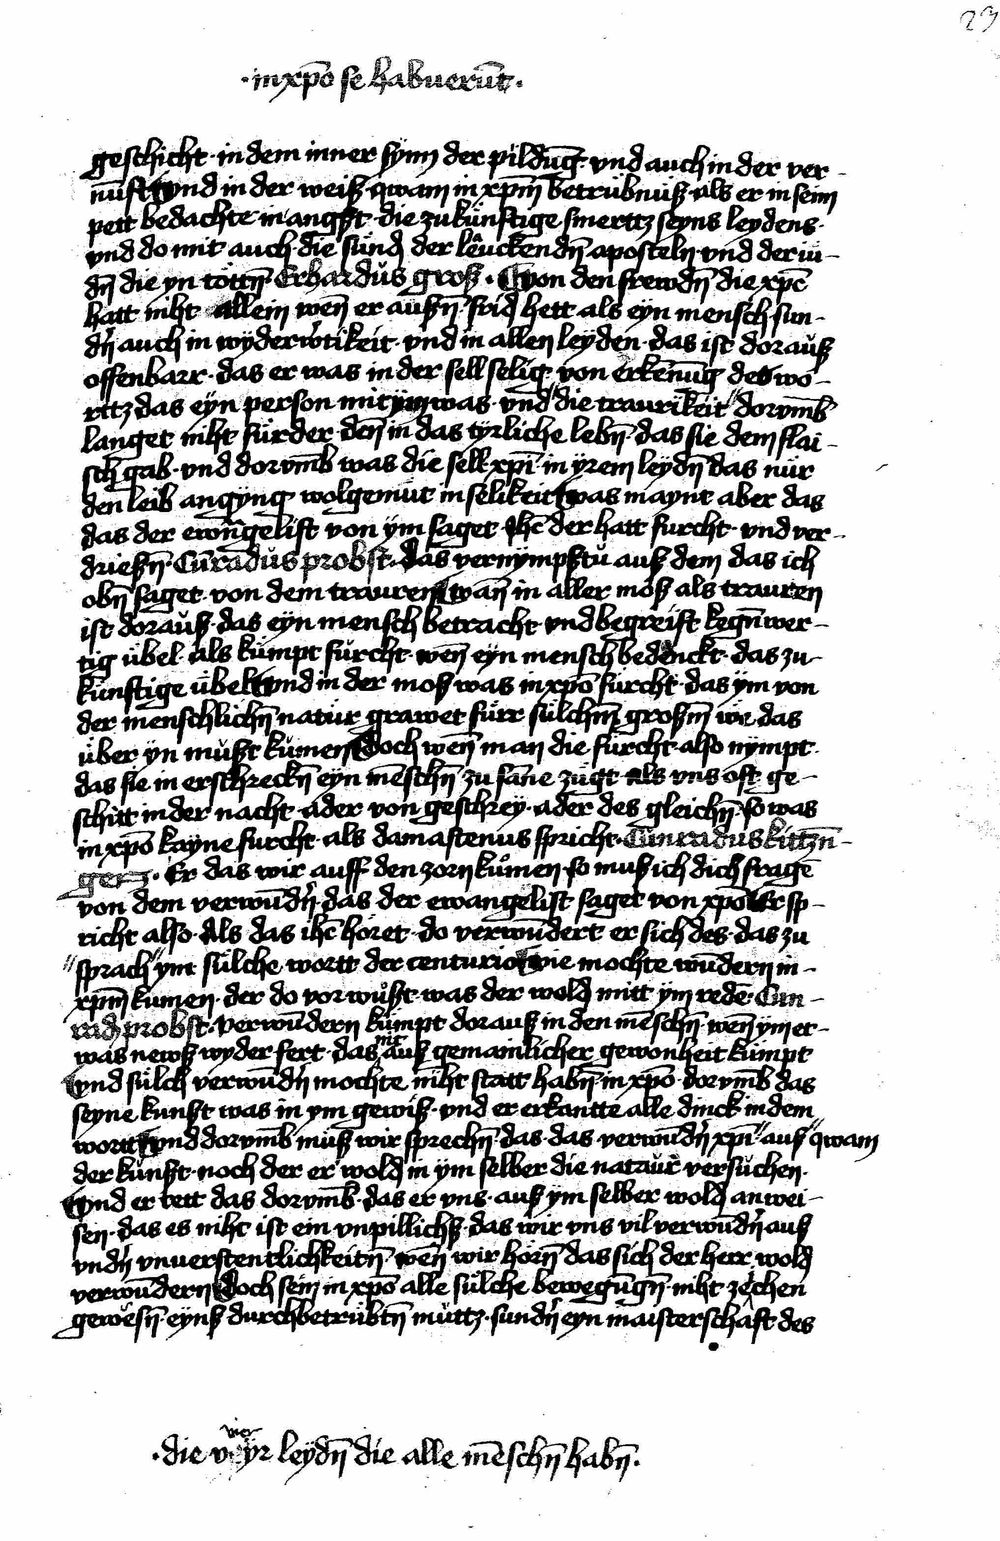 23
·in xp̄o se habuerūt·
geschicht· in dem inner synn der pildūg· vnd auch in der ver-
nūft vnd in der weiß qwam in xpm̄ betrübnuß als er in seim
pett bedachte in angst· die zukünftige smerttz seyns leydens·
vnd do mit auch die sünd der leuckendn̄ aposteln vnd der iu-
dn̄ die yn töttn̄· Erhardus groß· Von den frewdn̄ die xpc̄
hatt niht allein wen̄ er außn̄ frid hett als eyn mensch sun-
dn̄ auch in wyderwtikeit· vnd in allen leyden· das ist dorauß
offenbarr· das er was in der sell selig von erkennūg des wo-
rttz das eyn person mit ym was· vnd die traurikeit dorvmb
langet niht fürder den̄ in das tyrliche lebn̄· das sie dem flai-
sch gab· vnd dorvmb was die sell xpī in yrem leydn̄ das nür
den leib angyng wolgemut in selikeit was maynt aber das
das der ewāgelist von ym saget· Ihc̄ der hatt furcht· vnd ver-
drießn̄· Cūradus probst· das vernympstu auß dem das ich
obn̄ saget· von dem trauren wan̄ in aller moß als trauren
ist dorauß· das eyn mensch betracht vnd begreift kegn̄wer-
tig übel· als kümpt furcht· wen̄ eyn mensch bedenckt· das zu-
künftige übel vnd in der moß was in xpō furcht· das ym von
der menschlichn̄ natur grawet fürr sülchm̄ großm̄ we das
über yn müßt kumen doch wen̄ man die furcht also nympt·
das sie in erschreckn̄ eyn mēschn̄ zu sāne zügt als vns oft ge-
schitt in der nacht· ader von geschrey· ader des gleichn̄· so was
in xpō kayne furcht· als damastenus spricht· Cunradus kittzn̄-
gerr· Er das wir auff den zorn kumen· so muß ich dich fragē
von dem verwūdn̄· das der ewangelist saget von xpō Er sp-
richt also· Als das ihc̄ höret· do verwundert er sich des· das zu
sprach ym sülche wortt der centurio wie mochte wūdern in-
xpm̄ kumen· der do vor wüßt· was der wold mitt ym redē· Cun-
rad probst· Verwūdern kümpt dorauß in den mēschn̄· wen̄ ym et-
was newß wyder fert· das nit auß gemainlicher gewonheit kümpt
vnd sülch verwūdn̄ mochte niht statt habn̄ in xpō· dorvmb das
seyne kunst was in ym gewiß· vnd er erkantte alle dinck in dem
wortt vnd dorvmb müß wir sprechn̄· das· das verwūdn̄ xpī auß qwam
der künst· noch der er wold in ym selber die natuur versuchen·
Vnd er tett das dorvmb· das er vns· auß ym selber wold anwei-
sen· das es niht ist ein vnpillichß· das wir vns vil verwūdn̄ auß
vndn̄ vnuerstentlichkeitn̄· wen̄ wir hörn̄ das sich der herr wold
verwūdern doch sein in xpō alle sülche bewegūgn̄· niht zechen
gewesn̄· eynß durchbetrübtn̄ müttz· sundn̄ eyn maisterschaft des
vier
·die v yr leydn̄ die alle mēschn̄ habn̄·